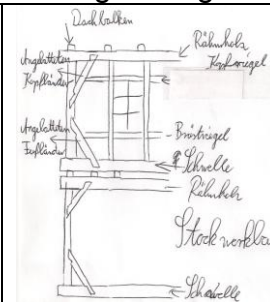 Dachbalken
Rähmholz
Kopfriegel
Angeblatteten
Kopfbänder
Angeblatteten
Fußbänder
Brüstriegel
Schwelle
Rähmholz
Stockwerkba
Schwelle